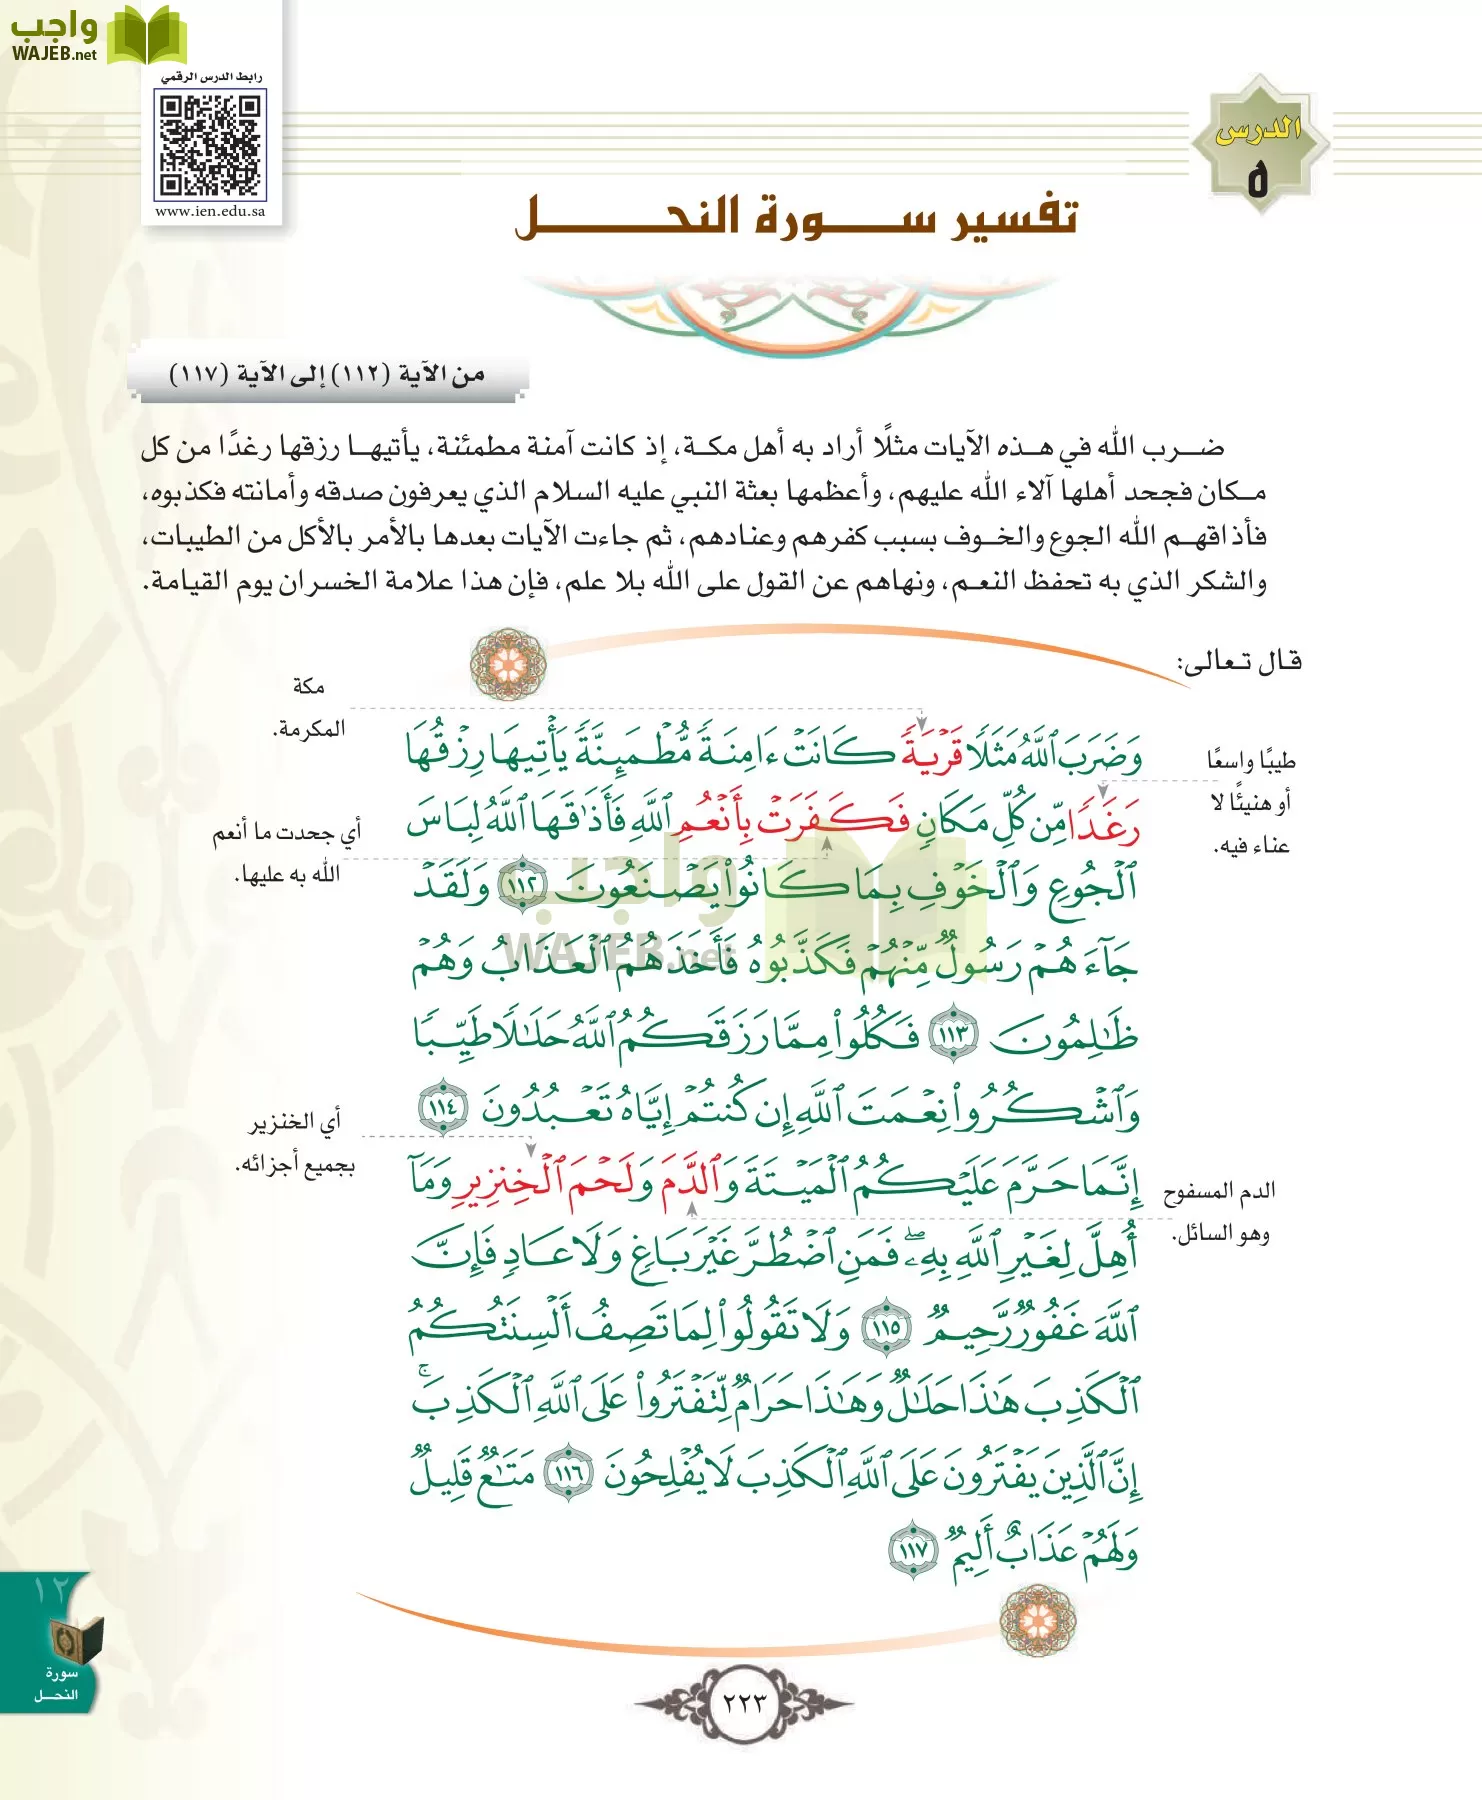 واجب
WAJEB.net
رابط الدرس الرقمي
www.ien.edu.sa
الدرس
٥
تفسير سورة النحل
من الآية (١١٢) إلى الآية (١١٧)
ضرب الله في هذه الآيات مثلًا أراد به أهل مكة، إذ كانت آمنة مطمئنة، يأتيها رزقها رغدًا من كل
مكان فجحد أهلها آلاء الله عليهم، وأعظمها بعثة النبي عليه السلام الذي يعرفون صدقه وأمانته فكذبوه،
فأذاقهم الله الجوع والخوف بسبب كفرهم وعنادهم، ثم جاءت الآيات بعدها بالأمر بالأكل من الطيبات،
والشكر الذي به تحفظ النعم، ونهاهم عن القول على الله بلا علم، فإن هذا علامة الخسران يوم القيامة.
قال تعالى:
مكة
المكرمة.
وَضَرَبَ ٱللَّهُ مَثَلٗا قَرۡيَةٗ كَانَتۡ ءَامِنَةٗ مُّطۡمَئِنَّةٗ يَأۡتِيهَا رِزۡقُهَا
طيبًا واسعًا
أو هنيئًا لا
عناء فيه.
رَغَدٗا مِّن كُلِّ مَكَانٖ فَكَفَرَتۡ بِأَنۡعُمِ ٱللَّهِ فَأَذَٰقَهَا ٱللَّهُ لِبَاسَ
أي جحدت ما أنعم
الله به عليها.
ٱلۡجُوعِ وَٱلۡخَوۡفِ بِمَا كَانُواْ يَصۡنَعُونَ ١١٢ وَلَقَدۡ
واجب
WAJEB.net
جَآءَهُمۡ رَسُولٞ مِّنۡهُمۡ فَكَذَّبُوهُ فَأَخَذَهُمُ ٱلۡعَذَابُ وَهُمۡ
ظَٰلِمُونَ ١١٣ فَكُلُواْ مِمَّا رَزَقَكُمُ ٱللَّهُ حَلَٰلٗا طَيِّبٗا
وَٱشۡكُرُواْ نِعۡمَتَ ٱللَّهِ إِن كُنتُمۡ إِيَّاهُ تَعۡبُدُونَ ١١٤
أي الخنزير
بجميع أجزائه.
إِنَّمَا حَرَّمَ عَلَيۡكُمُ ٱلۡمَيۡتَةَ وَٱلدَّمَ وَلَحۡمَ ٱلۡخِنزِيرِ وَمَآ
الدم المسفوح
وهو السائل.
أُهِلَّ لِغَيۡرِ ٱللَّهِ بِهِۦۖ فَمَنِ ٱضۡطُرَّ غَيۡرَ بَاغٖ وَلَا عَادٖ فَإِنَّ
ٱللَّهَ غَفُورٞ رَّحِيمٞ ١١٥ وَلَا تَقُولُواْ لِمَا تَصِفُ أَلۡسِنَتُكُمُ
ٱلۡكَذِبَ هَٰذَا حَلَٰلٞ وَهَٰذَا حَرَامٞ لِّتَفۡتَرُواْ عَلَى ٱللَّهِ ٱلۡكَذِبَۚ
إِنَّ ٱلَّذِينَ يَفۡتَرُونَ عَلَى ٱللَّهِ ٱلۡكَذِبَ لَا يُفۡلِحُونَ ١١٦ مَتَٰعٞ قَلِيلٞ
وَلَهُمۡ عَذَابٌ أَلِيمٞ ١١٧
١٢
سورة
النحل
٢٢٣